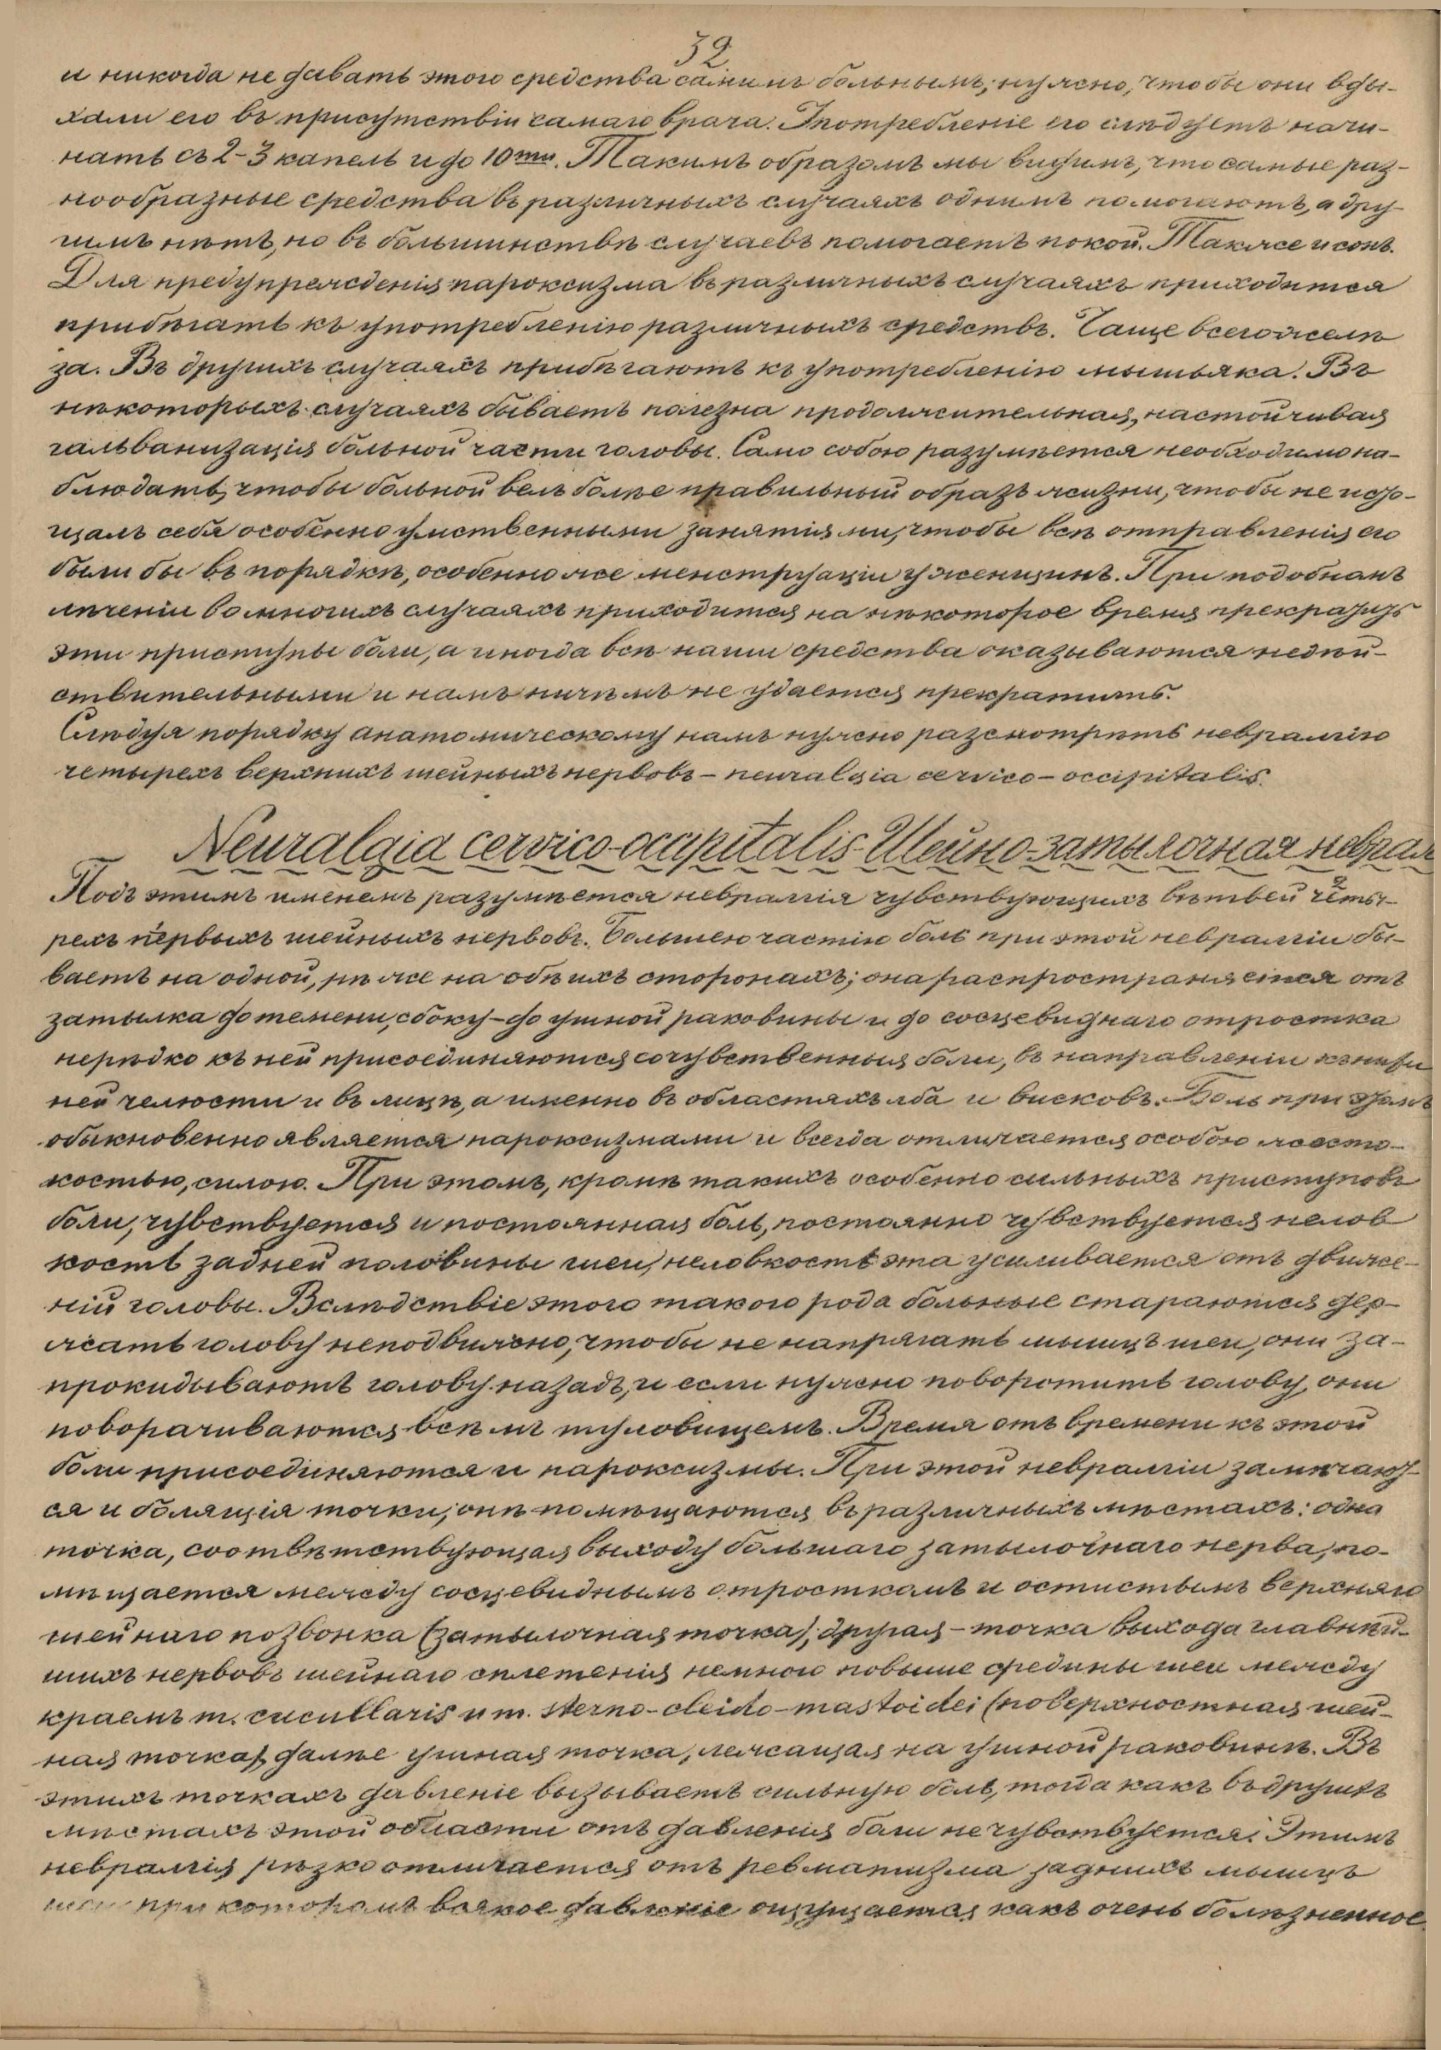 32
и никогда не давать этого средства самимъ больнымъ; нужно, чтобы они вды-
хали его въ присутствіи самаго врача. Употребленіе его слѣдуетъ начи-
нать съ 2-3 капель и до 10ти. Такимъ образомъ мы видимъ, что самые раз-
нообразные средства въ различныхъ случаяхъ однимъ помогаютъ, а дру-
гимъ нѣтъ, но въ большинствѣ случаевъ помогаетъ покой. Также и сонъ.
Для предупрежденія пароксизма въ различныхъ случаяхъ приходится
прибѣгать къ употребленію различныхъ средствъ. Чаще всего желѣ
за. Въ другихъ случаяхъ прибѣгаютъ къ употребленію мышьяка. Въ
нѣкоторыхъ случаяхъ бываетъ полезна продолжительная, настойчивая
гальванизація больной части головы. Само собою разумѣется необходимо на-
блюдать, чтобы больной велъ болѣе правильный образъ жизни, чтобы не исто-
щалъ себя особенно умственными занятіями, чтобы всѣ отправленія его
были бы въ порядкѣ, особенно же менструаціи у женщинъ. При подобномъ
лѣченіи во многихъ случаяхъ приходится на нѣкоторое время прекратить
эти приступы боли, а иногда всѣ наши средства оказываются недѣй-
ствительными и намъ ничѣмъ не удается прекратить.
Слѣдуя порядку анатомическому намъ нужно разсмотрѣть невралгію
четырехъ верхнихъ шейныхъ нервовъ – neuralgia cervico-occipitalis.
Neuralgia cervico-occipitalis-Шейно-затылочная неврал
Подъ этимъ именемъ разумѣется невралгія чувствующихъ вѣтвей четы-
рехъ первыхъ шейныхъ нервовъ. Большею частію боль при этой невралгіи бы-
ваетъ на одной, рѣже на обѣихъ сторонахъ; она распространяется отъ
затылка до темени, сбоку – до ушной раковины и до сосцевиднаго отростка
нерѣдко къ ней присоединяются сочувственныя боли, въ направленіи къ ниж
ней челюсти и въ лицѣ, а именно въ областяхъ лба и висковъ. Боль при этомъ
обыкновенно является пароксизмами и всегда отличается особою жесто-
костью, силою. При этомъ, кромѣ такихъ особенно сильныхъ приступовъ
боли, чувствуется и постоянная боль, постоянно чувствуется нелов
кость задней половины шеи, неловкость эта усиливается отъ движе-
ній головы. Вслѣдствіе этого такого рода больные стараются дер-
жать голову неподвижно, чтобы не напрягать мышцъ шеи, они за-
прокидываютъ голову назадъ, и если нужно поворотить голову, они
поворачиваются всѣмъ туловищемъ. Время отъ времени къ этой
боли присоединяются и пароксизмы. При этой невралгіи замѣчают-
ся и болящія точки; онѣ помѣщаются въ различныхъ мѣстахъ: одна
точка, соотвѣтствующая выходу большаго затылочнаго нерва, по-
мѣщается между сосцевиднымъ отросткомъ и остистымъ верхняго
шейнаго позвонка (затылочная точка); другая – точка выхода главнѣй-
шихъ нервовъ шейнаго сплетенія немного повыше средины шеи между
краемъ m. cucullaris и m. sterno-cleido-mastoidei (поверхностная шей-
ная точка), далѣе ушная точка, лежащая на ушной раковинѣ. Въ
этихъ точкахъ давленіе вызываетъ сильную боль, тогда какъ въ другихъ
мѣстахъ этой области отъ давленія боли не чувствуется. Этимъ
невралгія рѣзко отличается отъ ревматизма заднихъ мышцъ
шеи при которомъ всякое давленіе ощущается какъ очень болѣзненное.